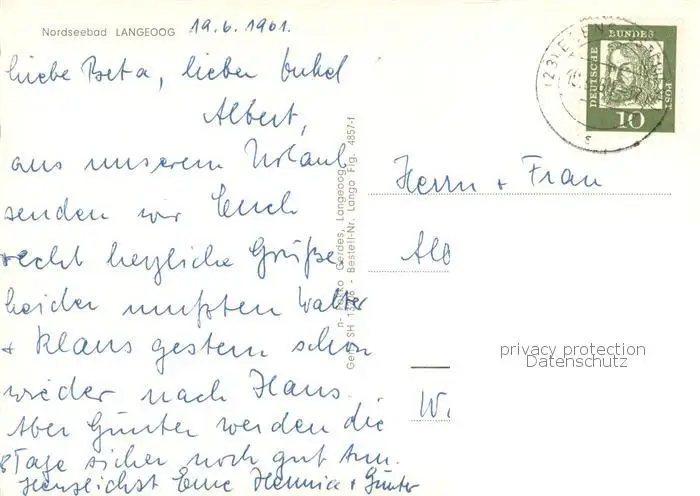 Nordseebad LANGEOOG 19.6.1961.
liebe Beta, lieber Onkel
Albert,
aus unserem Urlaub
senden wir Euch
recht herzliche Grüße.
leider mußten Walter
+ Klaus gestern schon
wieder nach Haus.
Aber Günter werden die
8 Tage sicher noch gut tun.
Herzlichst Eure Hennia + Günter
Gerdes, Langeoog
Bestell-Nr. Lango Fig. 4857-f
DEUTSCHE BUNDES POST
10
Herrn + Frau
Alb
W.
privacy protection
Datenschutz